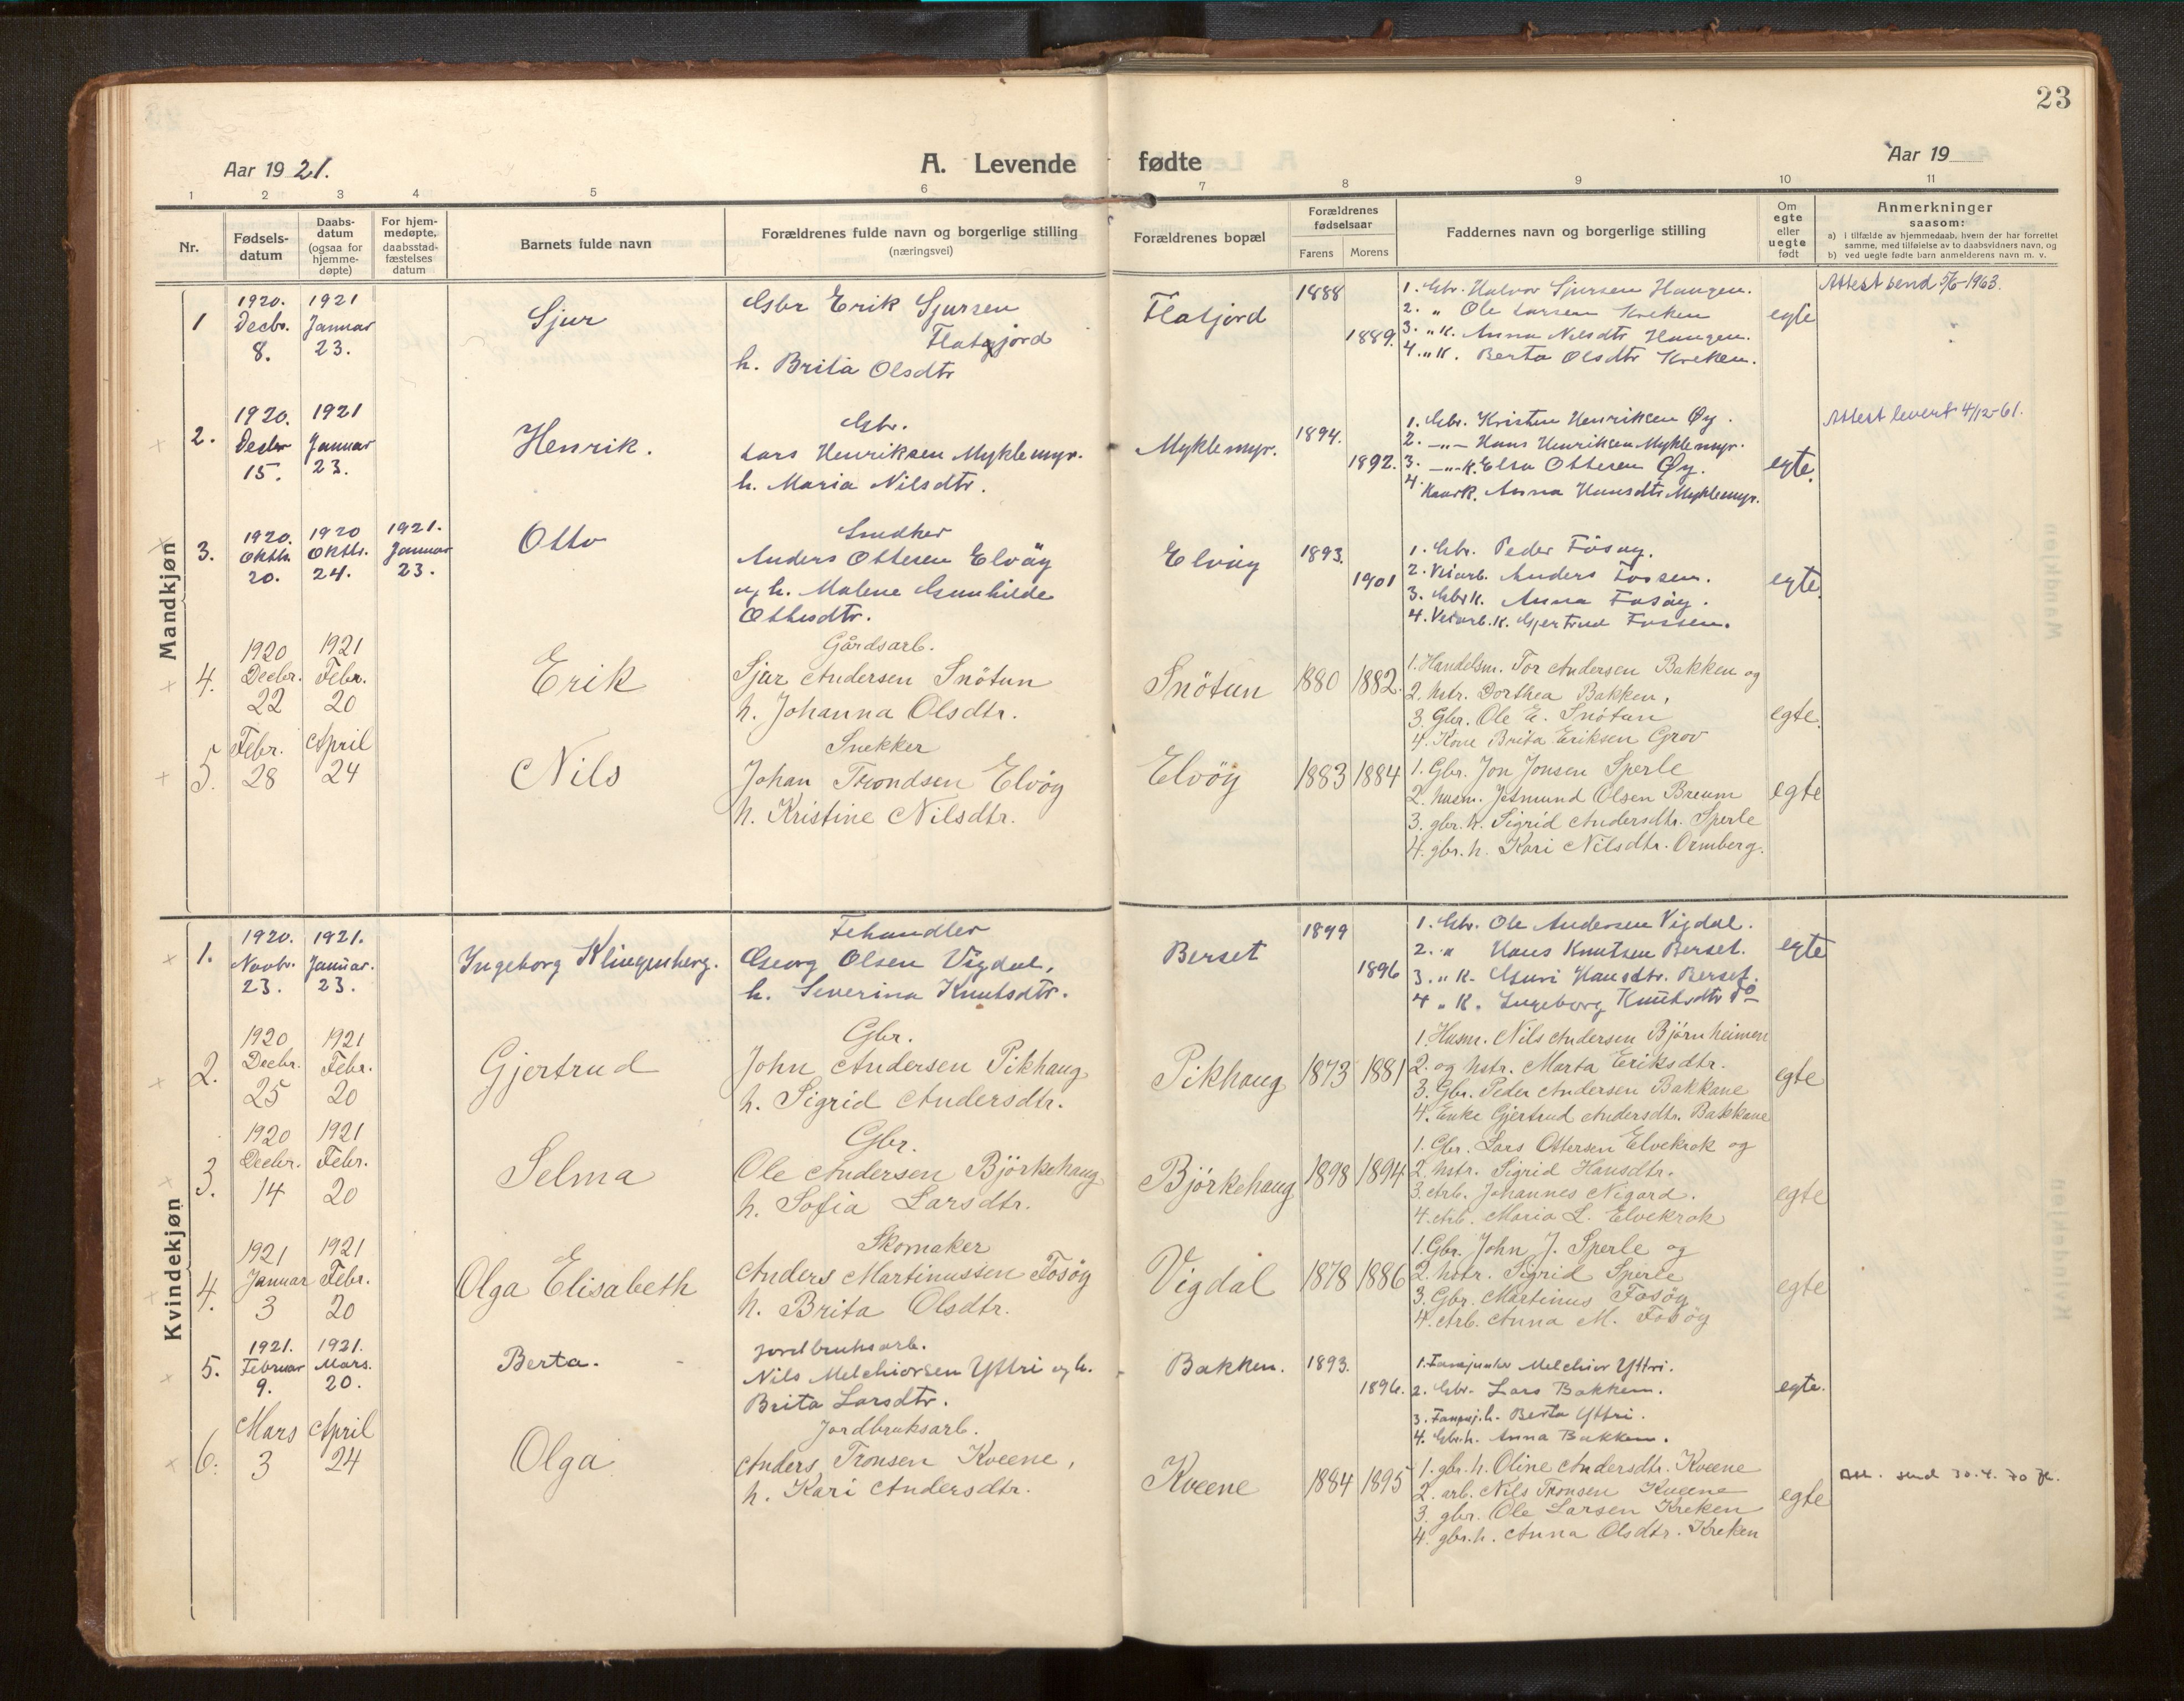 23
Aar 1921.
A. Levende fødte
Aar 19
1 2 3 4 5 6 7 8 9 10 11
Nr.
Fødsels-
datum
Daabs-
datum
(ogsaa for
hjemme-
døpte)
For hjem-
medøpte,
daabsstad-
fæstelses
datum
Barnets fulde navn
Forældrenes fulde navn og borgerlige stilling
(næringsvei)
Forældrenes bopæl
Forældrenes
fødselsaar
Farens Morens
Faddernes navn og borgerlige stilling
Om
egte
eller
uegte
født
Anmerkninger
saasom:
a) i tilfælde av hjemmedaab, hvem der har forrettet
samme, med tilføielse av to daabsvidners navn, og
b) ved uegte fødte barn anmelderens navn m. v.
Mandkjøn
1
1920.
Decbr.
8.
1921
Januar
23.
Sjur
Gbr Erik Sjursen
Flatjord
h. Brita Olsdtr
Flatjord
1888
1889.
1. Gbr. Halvor Sjursen Haugen.
2. " Ole Larsen Kreken
3. " k. Anna Nilsdtr Haugen.
4. " k. Berta Olsdtr Kreken.
egte
Attest send 5/6-1963.
2.
1920.
Decbr
15.
1921
Januar
23.
Henrik.
Gbr.
Lars Henriksen Myklemyr.
h. Maria Nilsdtr.
Myklemyr.
1894.
1892.
1. Gbr. Kristen Henriksen Øy.
2. -"- Hans Henriksen Myklemyr.
3. -"- k. Elsa Ottesen Øy.
4. Kaark. Anna Hansdtr Myklemyr.
egte.
Attest levert 4/12-61.
3.
1920.
Oktb.
20.
1920
Oktbr.
24.
1921.
Januar
23.
Otto
Snedker
Anders Ottesen Elvöy
og h. Malene Gunhilde
Ottesdtr.
Elvöy
1893.
1901
1. Gbr. Peder Fösöy.
2. Veiarb. Anders Fossen.
3. Gbrk. Anna Fosöy.
4. Veiarb.k. Gjertrud Fossen.
egte.
4.
1920
Decbr.
22
1921
Febr.
20
Erik
Gårdsarb.
Sjur Andersen Snötun
h. Johanna Olsdtr.
Snötun
1880 1882.
1. Handelsm. Tor Andersen Bakken og
2. hstr. Dorthea Bakken,
3. Gbr. Ole E. Snötun
4. Kone Brita Eriksen Grov
egte.
5.
Febr.
28
April
24
Nils
Snekker
Johan Trondsen Elvöy
h. Kristine Nilsdtr.
Elvöy
1883 1884
1. Gbr. Jon Jonsen Sperle
2. husm. Jetmund Olsen Breum
3. gbr. h. Sigrid Andersdtr. Sperle
4. gbr. h. Kari Nilsdtr. Ormberg.
egte
Kvindekjøn
1.
1920.
Novbr.
23.
1921.
Januar.
23.
Ingeborg Klingenberg.
Fehandler
Georg Olsen Vigdal,
h. Severina Knutsdtr.
Berset
1899
1896
1. Gbr. Ole Andersen Vigdal.
2. " Hans Knutsen Berset.
3. " k. Guri Hansdtr. Berset.
4 " k. Ingeborg Knutsdtr do
egte
2.
1920
Decbr.
25
1921
Febr.
20
Gjertrud
Gbr.
John Andersen Pikhaug
h. Sigrid Andersdtr.
Pikhaug
1873 1881
1. Husm. Nils Andersen Bjørnheimen
2. og hstr. Marta Eriksdtr.
3. Gbr. Peder Andersen Bakkane
4. Enke Gjertrud Andersdtr. Bakkane
egte
3.
1920
Decbr.
14
1921
Febr.
20
Selma
Gbr.
Ole Andersen Björkehaug
h. Sofia Larsdtr.
Björkehaug
1898 1894
1. Gbr. Lars Ottersen Elvekrok og
2. hstr. Sigrid Hansdtr.
3. Arb. Johannes Nigard.
4. Arb. Maria L. Elvekrok
egte
4.
1921
Januar
3
1921
Febr.
20
Olga Elisabeth
Skomaker
Anders Martinussen Fosöy
h. Brita Olsdtr.
Vigdal
1878 1886
1. Gbr. John J. Sperle og
2. hstr. Sigrid Sperle
3. Gbr. Martinus Fosöy
4. Arb. Anna M. Fosöy
egte
5.
1921.
Februar
9.
1921.
Mars.
20.
Berta.
Jordbruksarb.
Nils Melchiorsen Yttri og h.
Brita Larsdtr.
Bakken.
1893.
1896.
1. Fanejunker Melchior Yttri.
2. Gbr. Lars Bakken.
3. Fanej. h. Berta Yttri.
4. Gbr.h. Anna Bakken.
egte.
6.
Mars
3
April
24
Olga
Jordbruksarb.
Anders Tronsen Kveene,
h. Kari Andersdtr.
Kveene
1884 1895
1. gbr. h. Oline Andersdtr. Kveene
2. arb. Nils Tronsen Kveene
3. gbr. Ole Larsen Kreken
4. gbr. h. Anna Olsdtr. Kreken
egte
Att. send 30.4.70